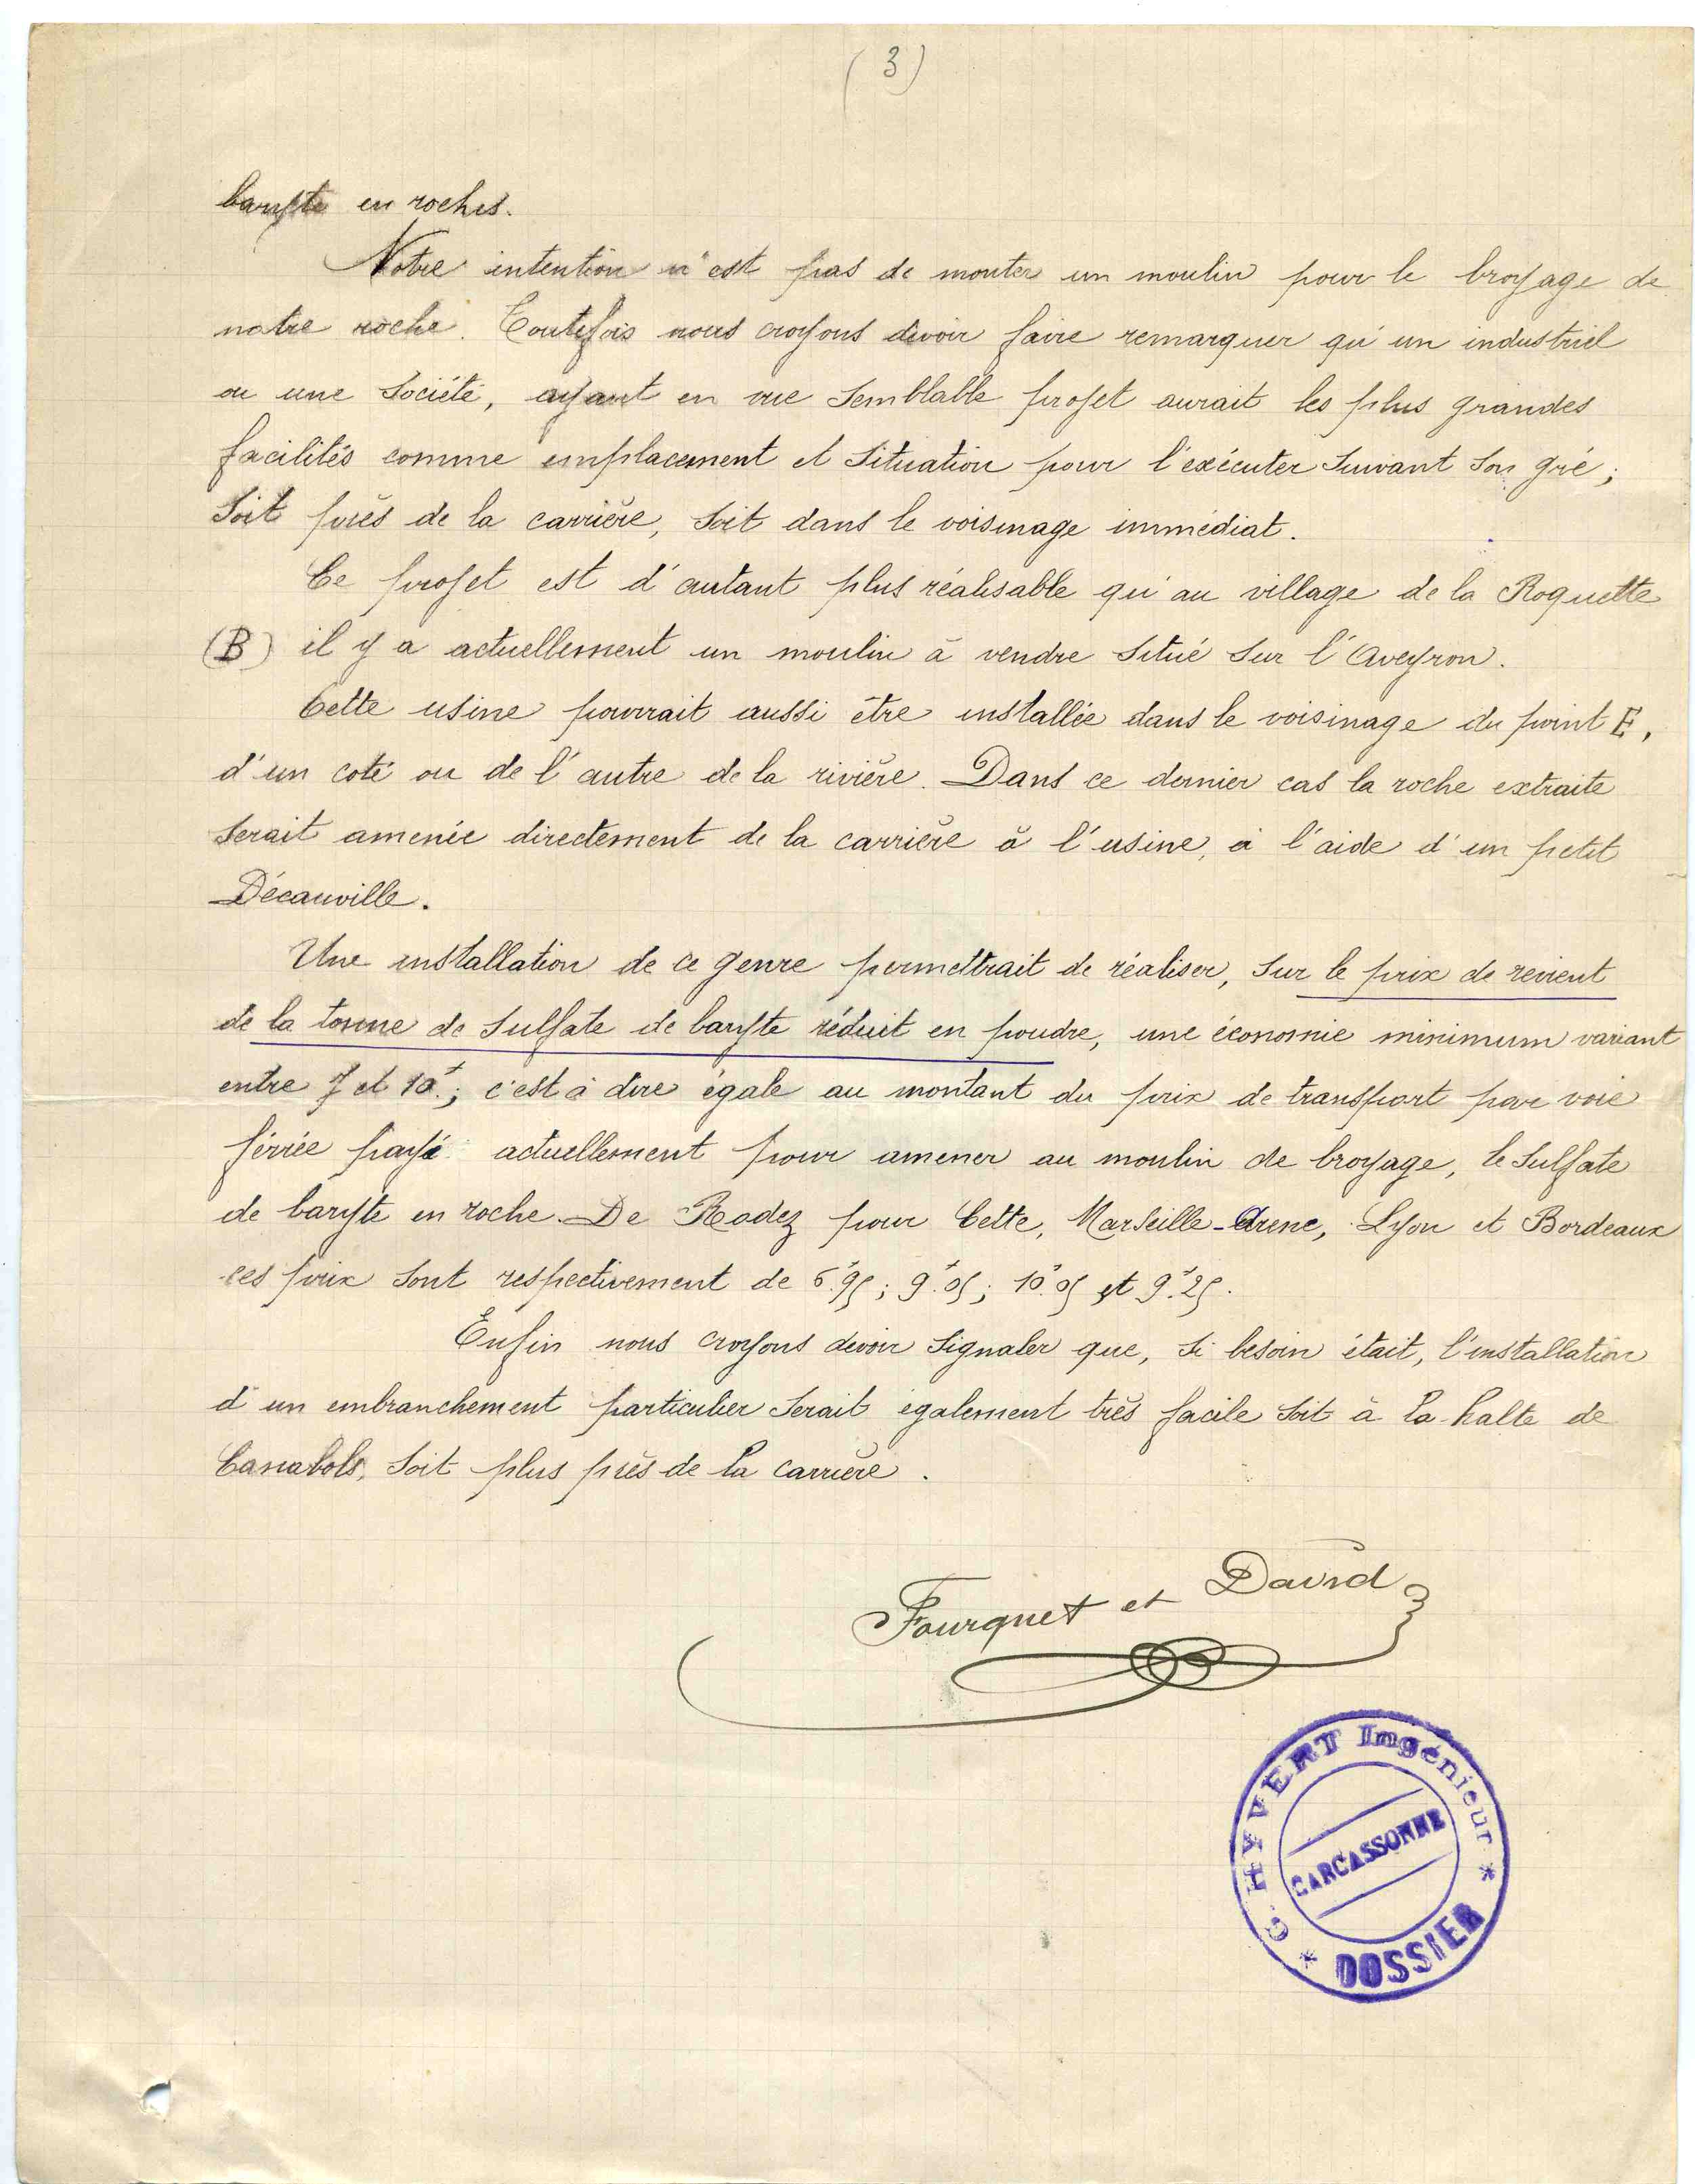 (3)
baryte en roches.
Notre intention n'est pas de monter un moulin pour le broyage de
notre roche. Toutefois nous croyons devoir faire remarquer qu'un industriel
ou une Société, ayant en vue semblable projet aurait les plus grandes
facilités comme emplacement et situation pour l'exécuter suivant son gré;
soit près de la carrière, soit dans le voisinage immédiat.
Ce projet est d'autant plus réalisable qu'au village de la Roquette
(B) il y a actuellement un moulin à vendre situé sur l'Aveyron.
Cette usine pourrait aussi être installée dans le voisinage du point E,
d'un coté ou de l'autre de la rivière. Dans ce dernier cas la roche extraite
serait amenée directement de la carrière à l'usine, à l'aide d'un petit
Décauville.
Une installation de ce genre permettrait de réaliser, sur le prix de revient
de la tonne de sulfate de baryte réduit en poudre, une économie minimum variant
entre 7 et 10f; c'est à dire égale au montant du prix de transport par voie
férrée payé actuellement pour amener au moulin de broyage, le sulfate
de baryte en roche. De Rodez pour Cette, Marseille-Arenc, Lyon et Bordeaux
ces prix sont respectivement de 6f.95; 9f.05; 10f.05 et 9f.25.
Enfin nous croyons devoir signaler que, si besoin était, l'installation
d'un embranchement particulier serait également très facile soit à la halte de
Canabols, soit plus près de la carrière.
Fourquet et David
G. HYVERT Ingénieur
CARCASSONNE
* DOSSIER *